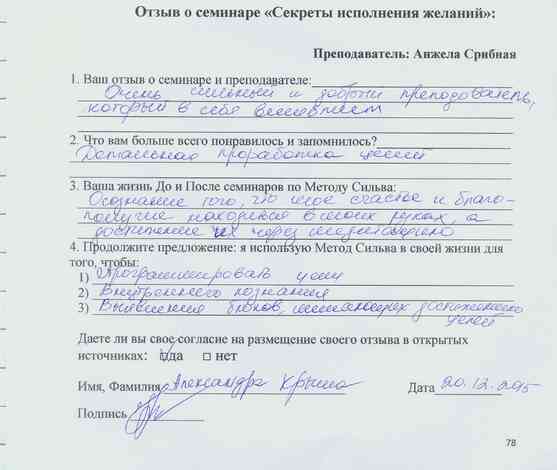 Отзыв о семинаре «Секреты исполнения желаний»:
Преподаватель: Анжела Срибная
1. Ваш отзыв о семинаре и преподавателе:
Очень сильный и добрый преподаватель,
который в себе
2. Что вам больше всего понравилось и запомнилось?
Детальная проработка целей
3. Ваша жизнь До и После семинаров по Методу Сильва:
Осознание того, что мое счастье и благо-
получие находится в моих руках, а
достижение их через
4. Продолжите предложение: я использую Метод Сильва в своей жизни для
того, чтобы:
1) Программировать цели
2) Внутреннего познания
3) Выявления блоков, мешающих достижению
целей
Даете ли вы свое согласие на размещение своего отзыва в открытых
источниках: да □ нет
Имя, Фамилия Александра Дата 20.12.
Подпись
78